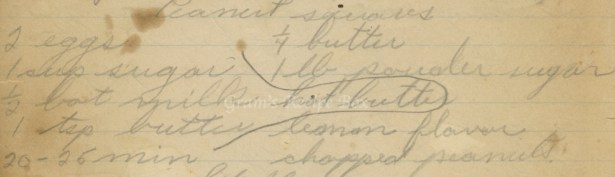 Peanut squares
2 eggs ¼ butter
1 cup sugar 1 lb powder sugar
½ hot milk hot butter
1 tsp butter lemon flavor
20-25 min chopped peanuts